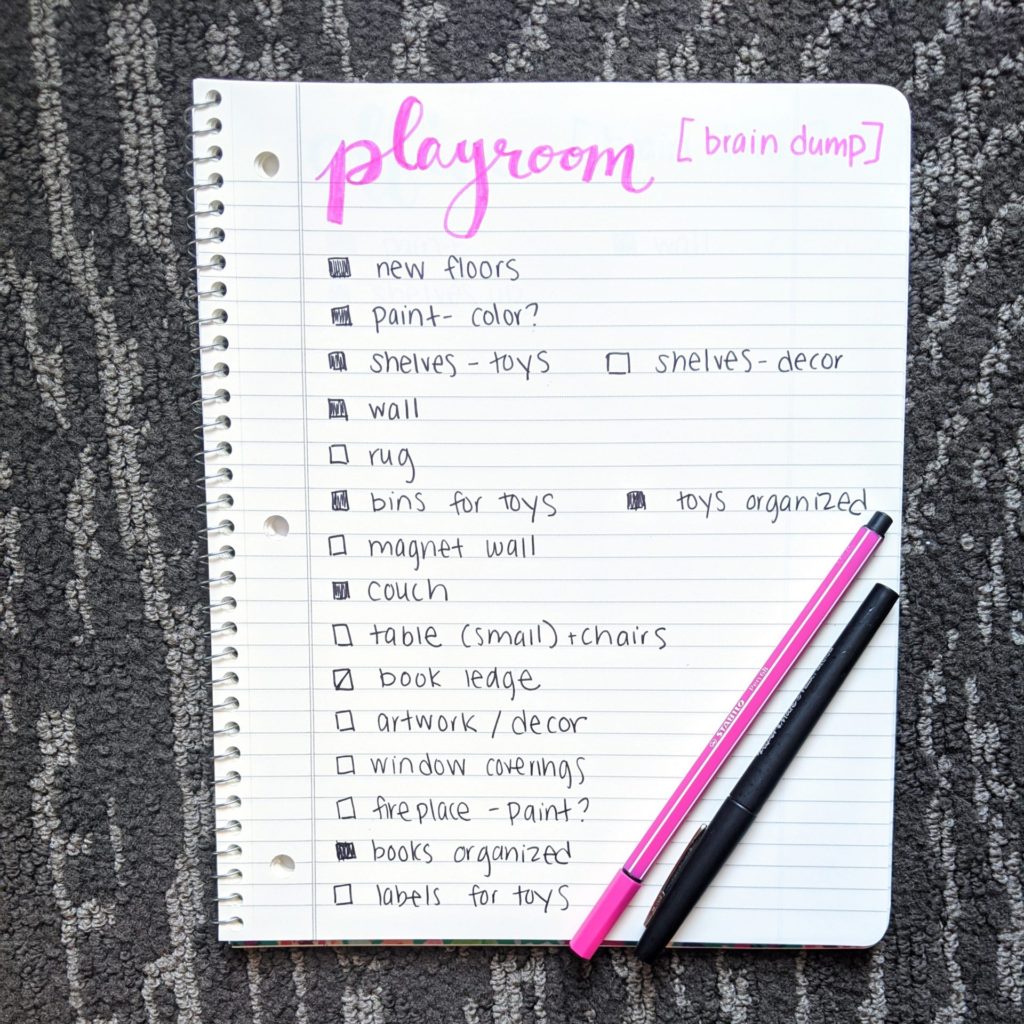 playroom [brain dump]
new floors
paint- color?
shelves - toys shelves - decor
wall
rug
bins for toys toys organized
magnet wall
couch
table (small) + chairs
book ledge
artwork / decor
window coverings
fireplace - paint?
books organized
labels for toys
STABILO